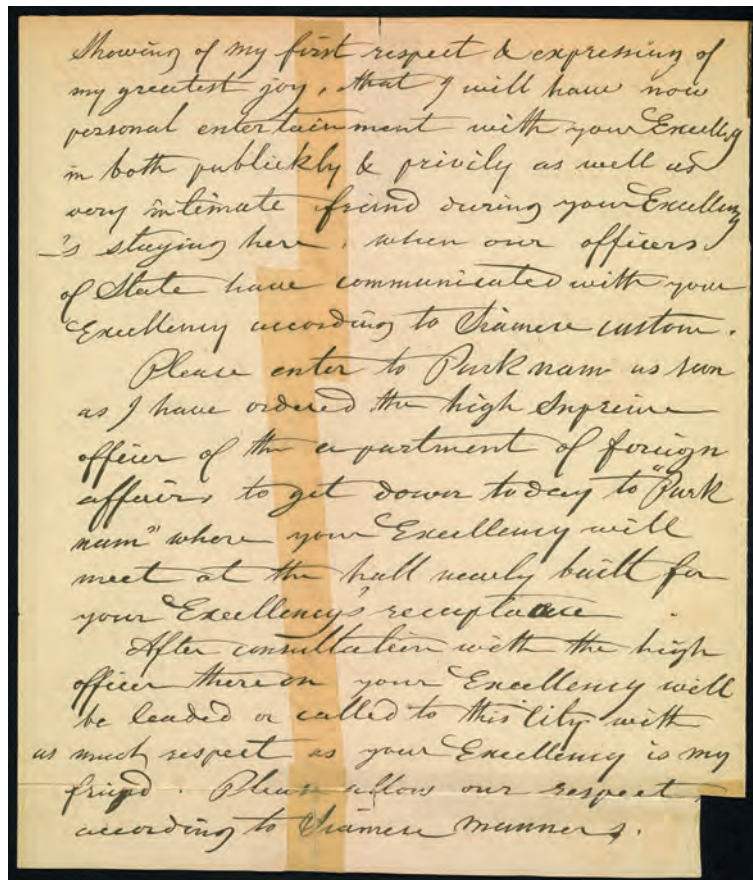 Showing of my first respect & expressing of
my greatest joy, that I will have now
personal entertainment with your Excellency
in both publickly & privily as well as
very intimate friend during your Excellency
–'s staying here, when our officers
of State have communicated with your
Excellency according to Siamese custom.
Please enter to Purknam as soon
as I have ordered the high Supreme
officer of the apartment of foreign
affairs to get down today to "Purk
nam" where your Excellency will
meet at the hall newly built for
your Excellency's receptance
After consultation with the high
officer thereon your Excellency will
be leaded or called to this City with
as much respect as your Excellency is my
friend. Please allow our respect,
according to Siamese manners.